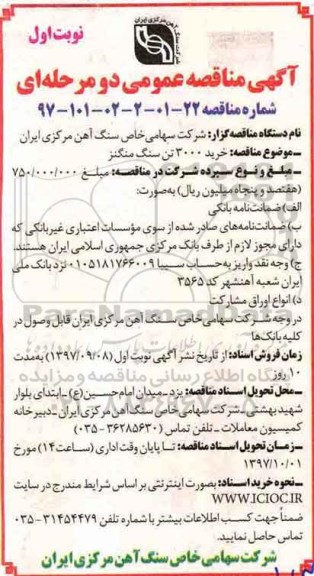 نوبت اول
شرکت سنگ آهن مرکزی ایران
آگهی مناقصه عمومی دو مرحله‌ای
شماره مناقصه ۲۲-۰۱-۲-۰۲-۱۰۱-۹۷
نام دستگاه مناقصه‌گزار: شرکت سهامی خاص سنگ آهن مرکزی ایران
ـ موضوع مناقصه: خرید ۳۰۰۰ تن سنگ منگنز
ـ مبلغ و نوع سپرده شرکت در مناقصه: مبلغ ۷۵۰/۰۰۰/۰۰۰
(هفتصد و پنجاه میلیون ریال) به‌صورت:
الف) ضمانت‌نامه بانکی
ب) ضمانت‌نامه‌های صادر شده از سوی مؤسسات اعتباری غیربانکی که
دارای مجوز لازم از طرف بانک مرکزی جمهوری اسلامی ایران هستند.
ج) وجه نقد واریز به حساب سیبا ۰۱۰۵۱۸۱۷۶۶۰۰۹ نزد بانک ملی
ایران شعبه آهنشهر کد ۳۵۶۵
د) انواع اوراق مشارکت
در وجه شرکت سهامی خاص سنگ آهن مرکزی ایران قابل وصول در
کلیه بانک‌ها
زمان فروش اسناد: از تاریخ نشر آگهی نوبت اول (۱۳۹۷/۰۹/۰۸) به‌مدت
۱۰ روز
ـ محل تحویل اسناد مناقصه: یزد ـ میدان امام حسین(ع) ـ ابتدای بلوار
شهید بهشتی ـ شرکت سهامی خاص سنگ آهن مرکزی ایران ـ دبیرخانه
کمیسیون معاملات ـ تلفن تماس (۳۶۲۸۵۶۳۰-۰۳۵)
ـ زمان تحویل اسناد مناقصه: تا پایان وقت اداری (ساعت ۱۴) مورخ
۱۳۹۷/۱۰/۰۱
ـ نحوه خرید اسناد: بصورت اینترنتی بر اساس شرایط مندرج در سایت
WWW.ICIOC.IR
ضمناً جهت کسب اطلاعات بیشتر با شماره تلفن ۳۱۴۵۴۴۷۹-۰۳۵
تماس حاصل نمایید.
شرکت سهامی خاص سنگ آهن مرکزی ایران